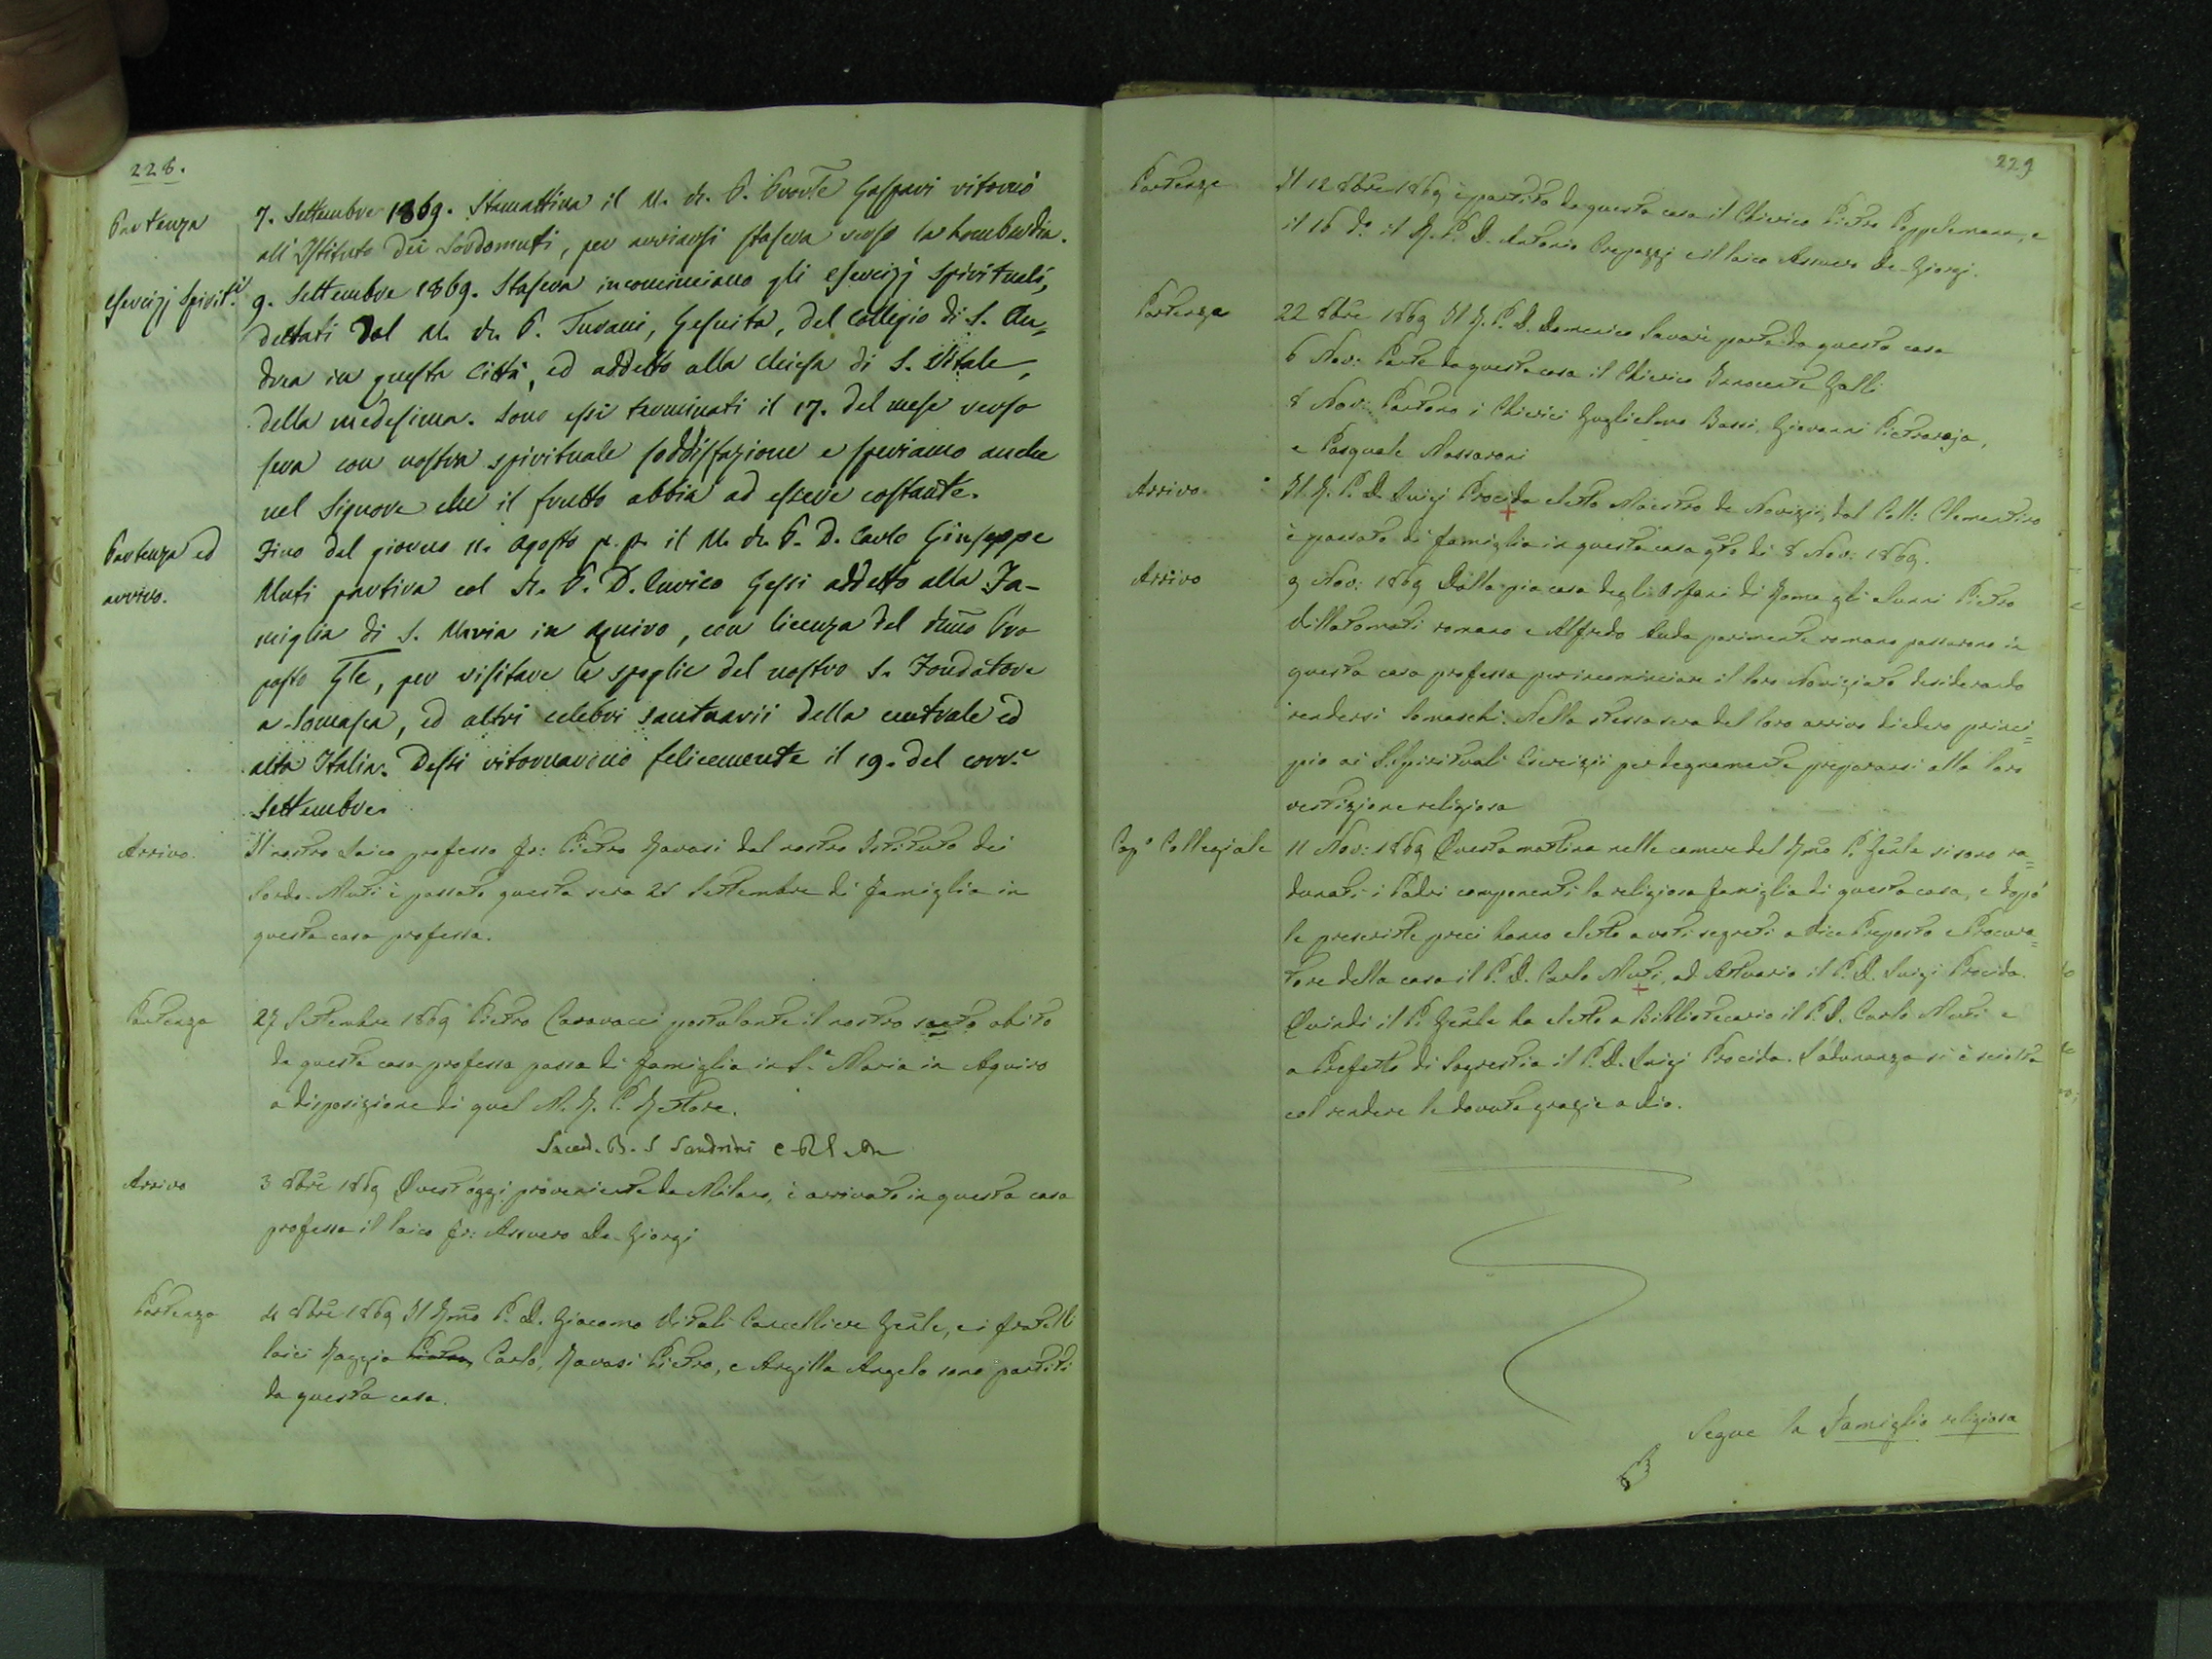 228.
Partenza
7. Settembre 1869. Stamattina il M. R. P. Prov.le Gaspari ritornò
all'Istituto dei Sordomuti, per avviarsi stasera verso la Lombardia.
Esercizj Spirit.i
9. Settembre 1869. Stasera incominciano gli esercizj spirituali,
dettati dal M. R. P. Turani, Gesuita, del Collegio di S. An=
drea in questa Città, ed addetto alla chiesa di S. Vitale,
della medesima. Sono essi terminati il 17. del mese verso
sera con nostra spirituale soddisfazione e speriamo anche
nel Signore che il frutto abbia ad essere costante.
Partenza ed
arrivo.
Fino dal giorno 11. Agosto p. p. il M. R. P. D. Carlo Giuseppe
Muti partiva col R. P. D. Enrico Gessi addetto alla Fa-
miglia di S. Maria in Aquiro, con licenza del Rmo Pre
posto Gle, per visitare le spoglie del nostro S. Fondatore
a Somasca, ed altri celebri santuarii della centrale ed
alta Italia. Dessi ritornarono felicemente il 19. del corr.e
Settembre.
Arrivo.
Il nostro Laico professo Fr: Pietro Ravasi dal nostro Istituto dei
Sordo-Muti è passato questa sera 21 Settembre di famiglia in
questa casa professa.
Partenza
27 Settembre 1869 Pietro Casavacci postulante il nostro santo abito
da questa casa professa passa di famiglia in S.a Maria in Aquiro
a disposizione di quel M. R. P. Rettore.
Sacerd. B. S Sandrini C R S
Arrivo
3 8bre 1869 Quest'oggi, proveniente da Milano, è arrivato in questa casa
professa il laico Fr: Assuero De-Giorgi
Partenza
4 8bre 1869 Il Rmo P. D. Giacomo Vitali Cancelliere Gnle, e i fratelli
laici Raggio Pietro, Carlo, Ravasi Pietro, e Argilla Angelo sono partiti
da questa casa.
229
Partenze
Il 12 8bre 1869 è partito da questa casa il Chierico Pietro Poppelemann, e
il 16 do. il R. P. D. Antonio Crepazzi e il laico Assuero De-Giorgi.
Partenze
22 8bre 1869 Il R. P. D. Domenico Savarè parte da questa casa
6 Nov: Parte da questa casa il Chierico Innocente Galli
8 Nov: Partono i Chierici Guglielmo Bassi, Giovanni Pietraroja,
e Pasquale Massaroni
Arrivo.
Il R. P. D. Luigi Procida eletto Maestro de Novizii, dal Coll: Clementino
è passato di famiglia in questa casa qto dì 8 Nov: 1869.
Arrivo
9 Nov: 1869 Dalla pia casa degli Orfani di Roma gli alunni Pietro
Dillatomati romano e Alfredo Auda parimente romano passarono in
questa casa professa per incominciare il loro Noviziato desiderando
rendersi Somaschi. Nella stessa sera del loro arrivo diedero princi=
pio ai S. Spirituali Esercizii per degnamente prepararsi alla loro
vestizione religiosa
Cap.o Collegiale
11 Nov: 1869 Questa mattina nelle camere del Rmo P. Gnle si sono ra=
dunati i Padri componenti la religiosa famiglia di questa casa, e dopo
le prescritte preci hanno eletto a voti segreti a Vice Preposto e Procura=
tore della casa il P. D. Carlo Muti, ad Attuario il P. D. Luigi Procida.
Quindi il P. Gnle ha eletto a Bibliotecario il P. D. Carlo Muti e
a Prefetto di Sagrestia il P. D. Luigi Procida. L'adunanza si è sciolta
col rendere le dovute grazie a Dio.
Segue la Famiglia religiosa